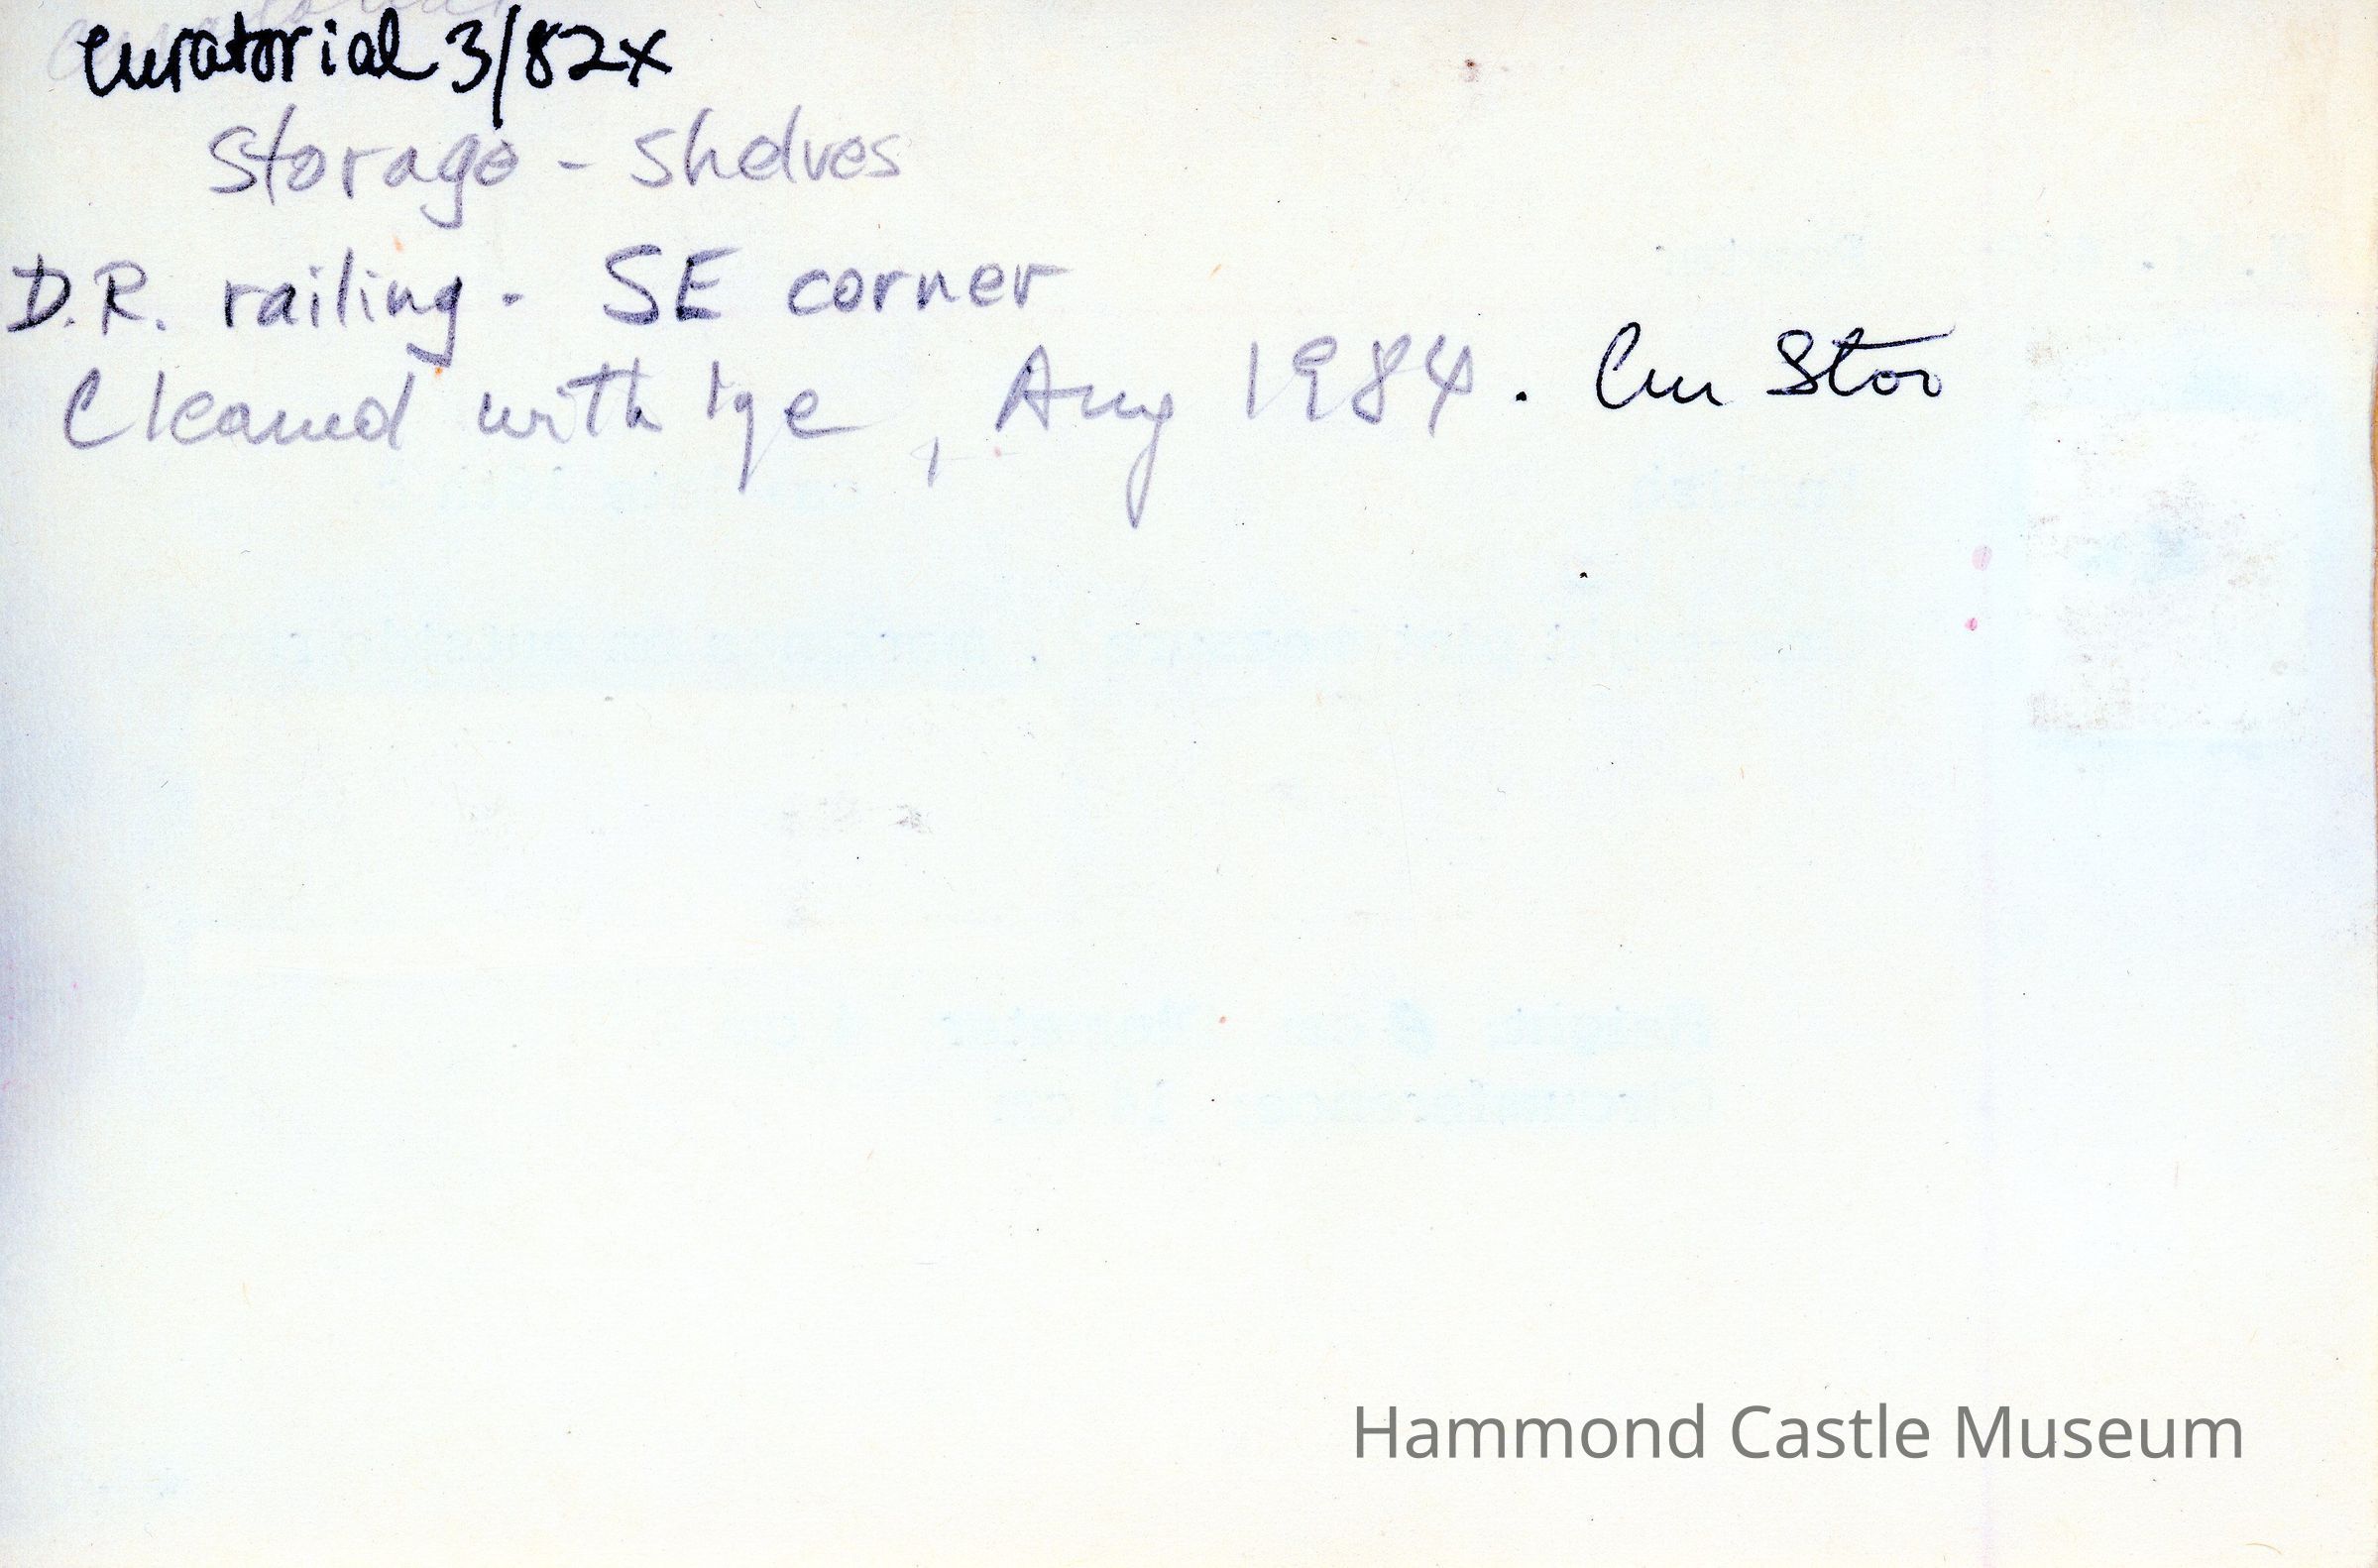 Curatorial 3/82x
Storage - Shelves
D.R. railing - SE corner
Cleaned with lye, Aug 1984. Cur Stor
Hammond Castle Museum